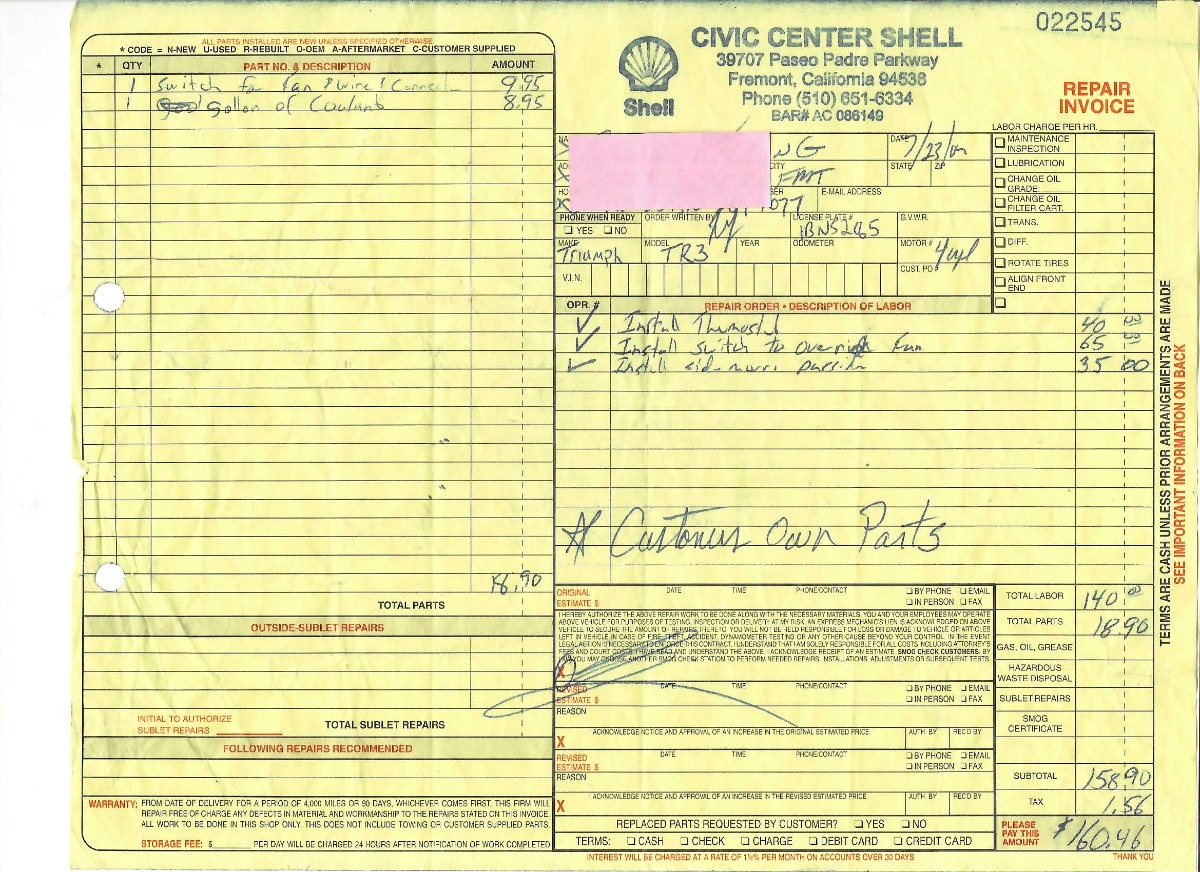 022545
CIVIC CENTER SHELL
39707 Paseo Padre Parkway
Fremont, California 94538
Phone (510) 651-6334
BAR# AC 086149
Shell
REPAIR
INVOICE
ALL PARTS INSTALLED ARE NEW UNLESS SPECIFIED OTHERWISE
* CODE = N-NEW U-USED R-REBUILT O-OEM A-AFTERMARKET C-CUSTOMER SUPPLIED
* QTY PART NO. & DESCRIPTION AMOUNT
1 Switch for fan & wire & Connect 9.95
1 gallon of Coulant 8.95
18.90
TOTAL PARTS
OUTSIDE-SUBLET REPAIRS
INITIAL TO AUTHORIZE
SUBLET REPAIRS
TOTAL SUBLET REPAIRS
FOLLOWING REPAIRS RECOMMENDED
WARRANTY: FROM DATE OF DELIVERY FOR A PERIOD OF 4,000 MILES OR 90 DAYS, WHICHEVER COMES FIRST, THIS FIRM WILL
REPAIR FREE OF CHARGE ANY DEFECTS IN MATERIAL AND WORKMANSHIP TO THE REPAIRS STATED ON THIS INVOICE.
ALL WORK TO BE DONE IN THIS SHOP ONLY. THIS DOES NOT INCLUDE TOWING OR CUSTOMER SUPPLIED PARTS.
STORAGE FEE: $ PER DAY WILL BE CHARGED 24 HOURS AFTER NOTIFICATION OF WORK COMPLETED
NG DATE 7/23/
CITY FMT STATE ZIP
E-MAIL ADDRESS
077
PHONE WHEN READY ORDER WRITTEN BY LICENSE PLATE # G.V.W.R.
YES NO
MAKE MODEL YEAR ODOMETER MOTOR # 4cyl
Triumph TR3
CUST. PO #
V.I.N.
LABOR CHARGE PER HR.
MAINTENANCE
INSPECTION
LUBRICATION
CHANGE OIL
GRADE:
CHANGE OIL
FILTER CART.
TRANS.
DIFF.
ROTATE TIRES
ALIGN FRONT
END
OPR. # REPAIR ORDER • DESCRIPTION OF LABOR
Install Thermostat 40 00
Install switch to Fan 65 00
Install side 35 00
# Customer Own Parts
ORIGINAL
ESTIMATE $ DATE TIME PHONE/CONTACT BY PHONE EMAIL
IN PERSON FAX
I HEREBY AUTHORIZE THE ABOVE REPAIR WORK TO BE DONE ALONG WITH THE NECESSARY MATERIALS. YOU AND YOUR EMPLOYEES MAY OPERATE
ABOVE VEHICLE FOR PURPOSES OF TESTING, INSPECTION OR DELIVERY AT MY RISK. AN EXPRESS MECHANIC'S LIEN IS ACKNOWLEDGED ON ABOVE
VEHICLE TO SECURE THE AMOUNT OF REPAIRS THERETO. YOU WILL NOT BE HELD RESPONSIBLE FOR LOSS OR DAMAGE TO VEHICLE OR ARTICLES
LEFT IN VEHICLE IN CASE OF FIRE, THEFT, ACCIDENT, DYNAMOMETER TESTING OR ANY OTHER CAUSE BEYOND YOUR CONTROL. IN THE EVENT
LEGAL ACTION IS NECESSARY TO ENFORCE THIS CONTRACT, I UNDERSTAND THAT I AM SOLELY RESPONSIBLE FOR ALL COSTS INCLUDING ATTORNEY'S
FEES AND COURT COSTS. I HAVE READ AND UNDERSTAND THE ABOVE. I ACKNOWLEDGE RECEIPT OF AN ESTIMATE. SMOG CHECK CUSTOMERS: BY
YOU MAY CHOOSE ANOTHER SMOG CHECK STATION TO PERFORM NEEDED REPAIRS, INSTALLATIONS, ADJUSTMENTS OR SUBSEQUENT TESTS.
X
REVISED
ESTIMATE $ DATE TIME PHONE/CONTACT BY PHONE EMAIL
IN PERSON FAX
REASON
X ACKNOWLEDGE NOTICE AND APPROVAL OF AN INCREASE IN THE ORIGINAL ESTIMATED PRICE. AUTH. BY REC'D BY
REVISED
ESTIMATE $ DATE TIME PHONE/CONTACT BY PHONE EMAIL
IN PERSON FAX
REASON
X ACKNOWLEDGE NOTICE AND APPROVAL OF AN INCREASE IN THE REVISED ESTIMATED PRICE. AUTH. BY REC'D BY
REPLACED PARTS REQUESTED BY CUSTOMER? YES NO
TERMS: CASH CHECK CHARGE DEBIT CARD CREDIT CARD
INTEREST WILL BE CHARGED AT A RATE OF 1½% PER MONTH ON ACCOUNTS OVER 30 DAYS
TOTAL LABOR 140 00
TOTAL PARTS 18.90
GAS, OIL, GREASE
HAZARDOUS
WASTE DISPOSAL
SUBLET REPAIRS
SMOG
CERTIFICATE
SUBTOTAL 158.90
TAX 1.56
PLEASE
PAY THIS
AMOUNT $160.46
THANK YOU
TERMS ARE CASH UNLESS PRIOR ARRANGEMENTS ARE MADE
SEE IMPORTANT INFORMATION ON BACK